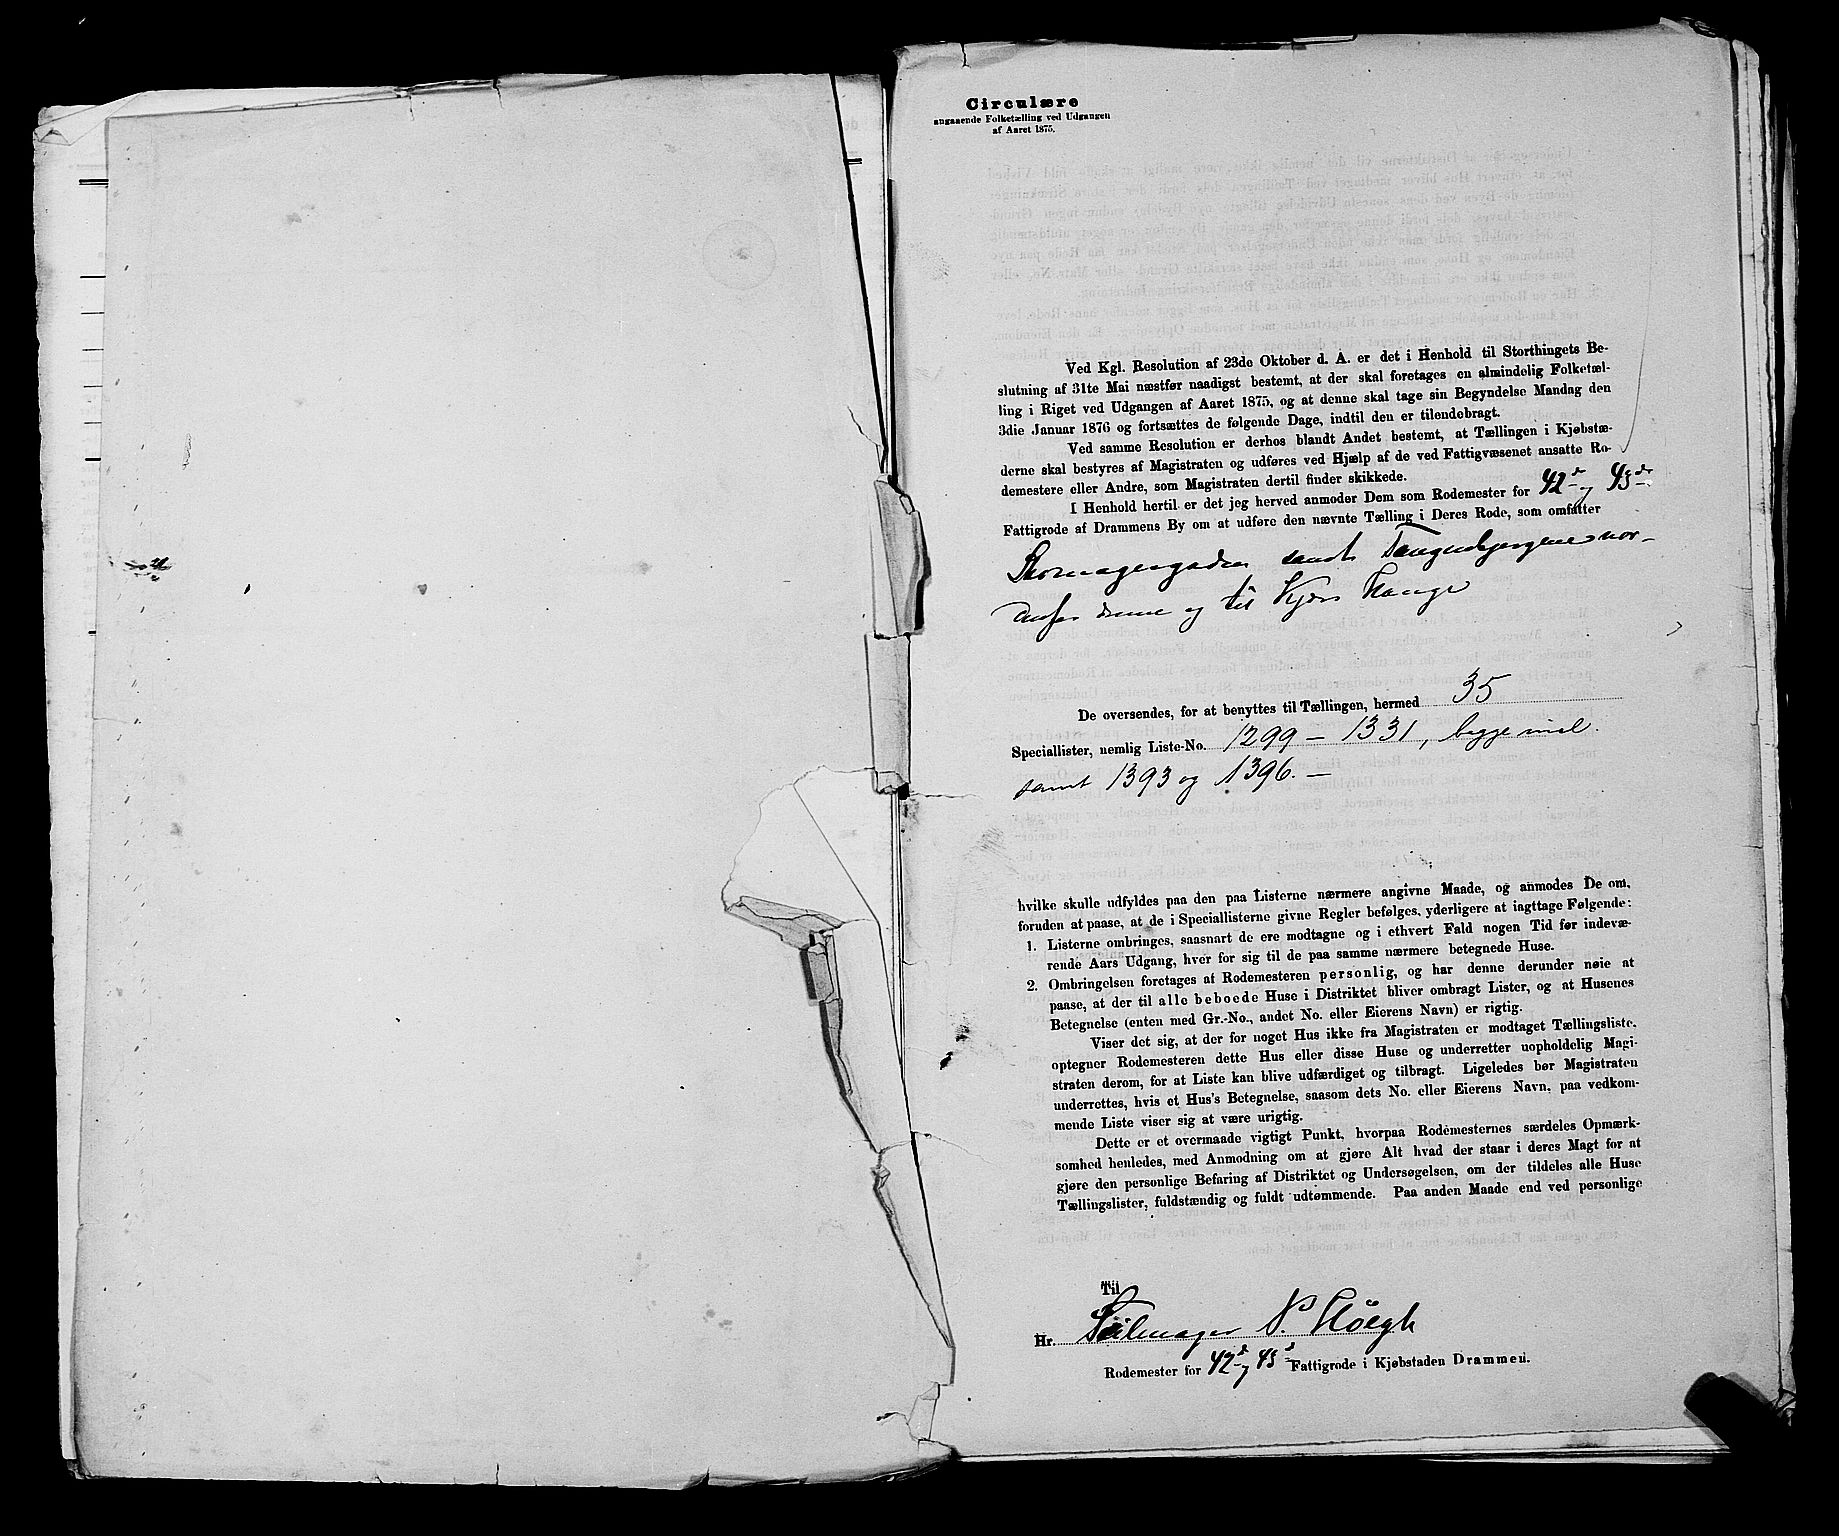 Circulære
angaaende Folketælling ved Udgangen
af Aaret 1875.
Ved Kgl. Resolution af 23de Oktober d. A. er det i Henhold til Storthingets Be-
slutning af 31te Mai næstfør naadigst bestemt, at der skal foretages en almindelig Folketæl-
ling i Riget ved Udgangen af Aaret 1875, og at denne skal tage sin Begyndelse Mandag den
3die Januar 1876 og fortsættes de følgende Dage, indtil den er tilendebragt.
Ved samme Resolution er derhos blandt Andet bestemt, at Tællingen i Kjøbstæ-
derne skal bestyres af Magistraten og udføres ved Hjælp af de ved Fattigvæsenet ansatte Ro-
demestere eller Andre, som Magistraten dertil finder skikkede.
I Henhold hertil er det jeg herved anmoder Dem som Rodemester for 42d og 43de
Fattigrode af Drammens By om at udføre den nævnte Tælling i Deres Rode, som omfatter
Skomagergaden samt Tangenbjergene nor-
denfor denne og til Kjørs Hauge
De oversendes, for at benyttes til Tællingen, hermed 35
Speciallister, nemlig Liste-No. 1299 - 1331, begge incl.
samt 1393 og 1396. -
hvilke skulle udfyldes paa den paa Listerne nærmere angivne Maade, og anmodes De om,
foruden at paase, at de i Speciallisterne givne Regler befølges, yderligere at iagttage Følgende:
1. Listerne ombringes, saasnart de ere modtagne og i ethvert Fald nogen Tid før indevæ-
rende Aars Udgang, hver for sig til de paa samme nærmere betegnede Huse.
2. Ombringelsen foretages af Rodemesteren personlig, og har denne derunder nøie at
paase, at der til alle beboede Huse i Distriktet bliver ombragt Lister, og at Husenes
Betegnelse (enten med Gr.-No., andet No. eller Eierens Navn) er rigtig.
Viser det sig, at der for noget Hus ikke fra Magistraten er modtaget Tællingsliste,
optegner Rodemesteren dette Hus eller disse Huse og underretter uopholdelig Magi-
straten derom, for at Liste kan blive udfærdiget og tilbragt. Ligeledes bør Magistraten
underrettes, hvis et Hus's Betegnelse, saasom dets No. eller Eierens Navn, paa vedkom-
mende Liste viser sig at være urigtig.
Dette er et overmaade vigtigt Punkt, hvorpaa Rodemesternes særdeles Opmærk-
somhed henledes, med Anmodning om at gjøre Alt hvad der staar i deres Magt for at
gjøre den personlige Befaring af Distriktet og Undersøgelsen, om der tildeles alle Huse
Tællingslister, fuldstændig og fuldt udtømmende. Paa anden Maade end ved personlige
Til
Hr. Seilmager P. Høegh
Rodemester for 42d og 43d Fattigrode i Kjøbstaden Drammen.